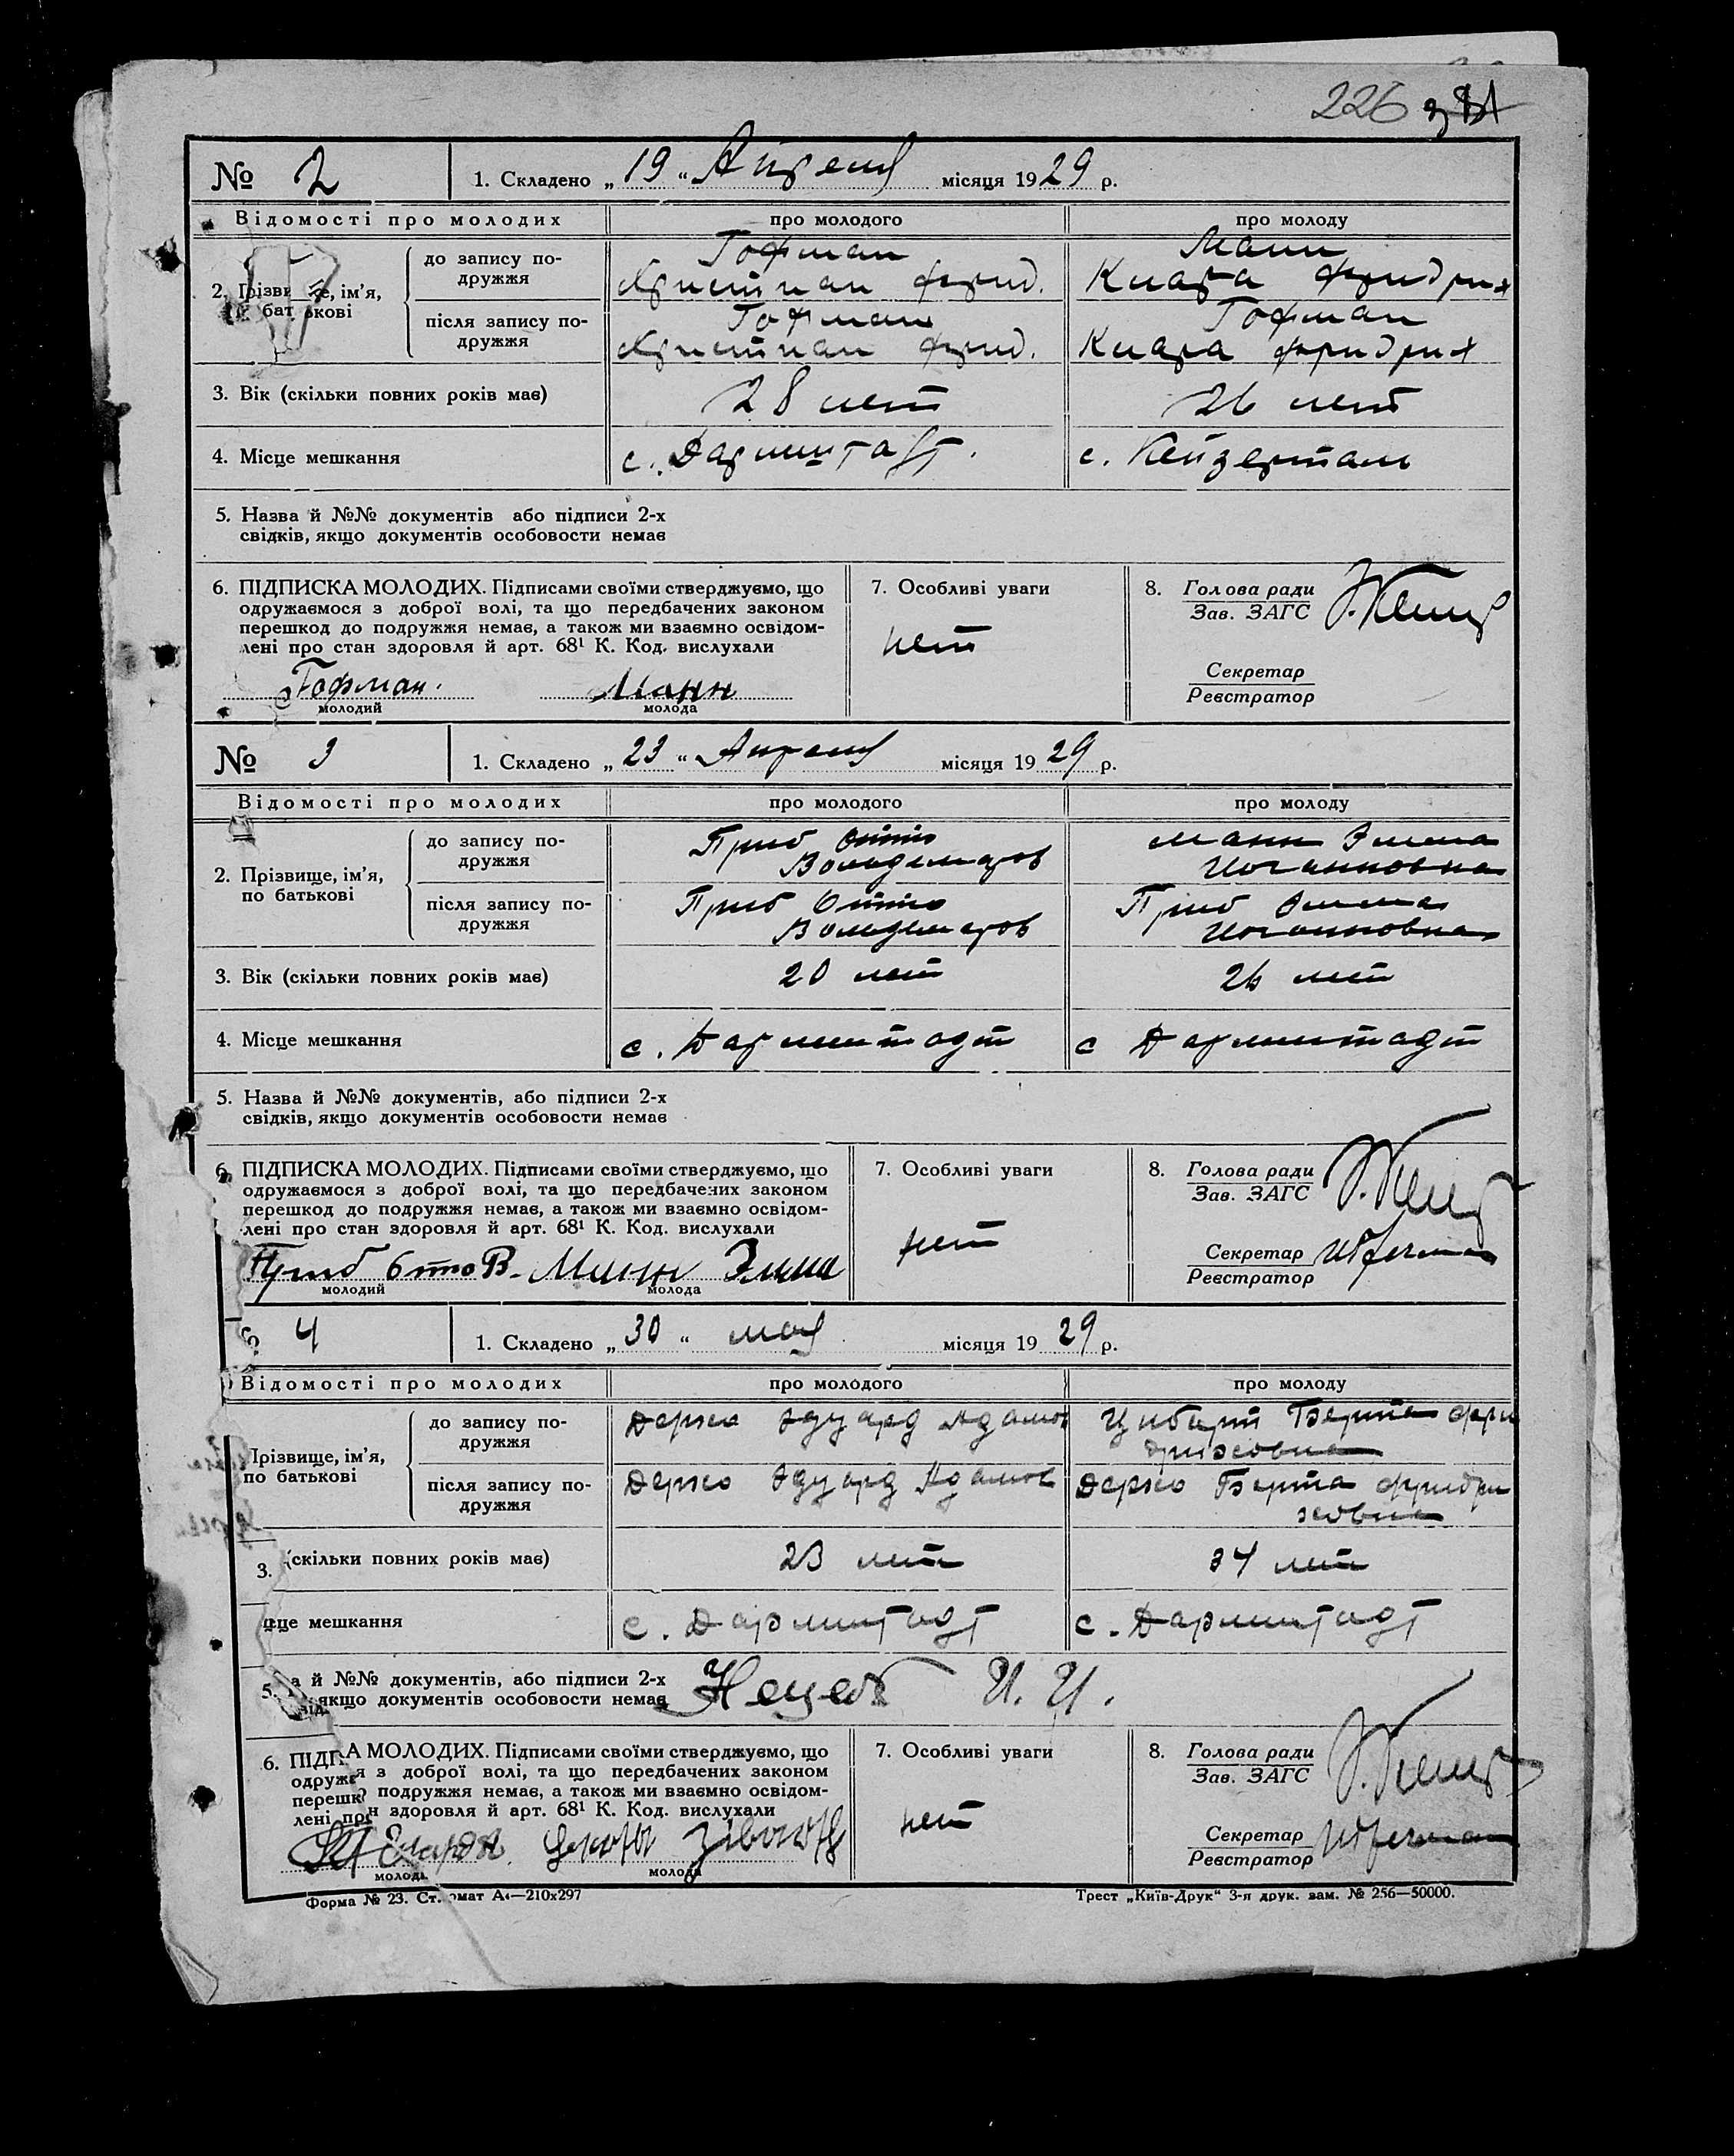 226
№ 2 1. Складено „ 19 “ Апреля місяця 1929 р.
Відомості про молодих про молодого про молоду
2. Прізвище, ім’я,
бат кові
до запису по-
дружжя
Гофман
Християн Фрид.
Манн
Клара Фридрих
після запису по-
дружжя
Гофман
Християн Фрид.
Гофман
Клара Фридрих
3. Вік (скільки повних років має) 28 лет 26 лет
4. Місце мешкання с. Дармштадт. с. Кейзерталь
5. Назва й №№ документів або підписи 2-х
свідків, якщо документів особовости немає
6. ПІДПИСКА МОЛОДИХ. Підписами своїми стверджуємо, що
одружаємося з доброї волі, та що передбачених законом
перешкод до подружжя немає, а також ми взаємно освідом-
лені про стан здоровля й арт. 68¹ К. Код. вислухали
Гофман. Манн
молодий молода
7. Особливі уваги
нет
8. Голова ради
Зав. ЗАГС
Секретар
Реєстратор
№ 3 1. Складено „ 23 “ Апреля місяця 1929 р.
Відомості про молодих про молодого про молоду
2. Прізвище, ім’я,
по батькові
до запису по-
дружжя
Приб Отто
Вольдемаров
Манн Эмма
Иогановна
після запису по-
дружжя
Приб Отто
Вольдемаров
Приб Эмма
Иогановна
3. Вік (скільки повних років має) 20 лет 26 лет
4. Місце мешкання с. Дармштадт с Дармштадт
5. Назва й №№ документів, або підписи 2-х
свідків, якщо документів особовости немає
6. ПІДПИСКА МОЛОДИХ. Підписами своїми стверджуємо, що
одружаємося з доброї волі, та що передбачених законом
перешкод до подружжя немає, а також ми взаємно освідом-
лені про стан здоровля й арт. 68¹ К. Код. вислухали
Приб Отто В. Манн Эмма
молодий молода
7. Особливі уваги
нет
8. Голова ради
Зав. ЗАГС
Секретар
Реєстратор
4 1. Складено „ 30 “ мая місяця 1929 р.
Відомості про молодих про молодого про молоду
Прізвище, ім’я,
по батькові
до запису по-
дружжя
Держо Эдуард Адамов
Циберт Берта Фри
дриховна
після запису по-
дружжя
Держо Эдуард Адамов
Держо Берта Фридри
ховна
3. (скільки повних років має) 23 лет 34 лет
це мешкання с. Дармштадт с. Дармштадт
5. а й №№ документів, або підписи 2-х
якщо документів особовости немає
И. И.
6. ПІДП А МОЛОДИХ. Підписами своїми стверджуємо, що
одружа я з доброї волі, та що передбачених законом
перешк подружжя немає, а також ми взаємно освідом-
лені про н здоровля й арт. 68¹ К. Код. вислухали
молоди молода
7. Особливі уваги
нет
8. Голова ради
Зав. ЗАГС
Секретар
Реєстратор
Форма № 23. Ст. ормат А4—210x297 Трест „Київ-Друк“ 3-я друк. зам. № 256—50000.